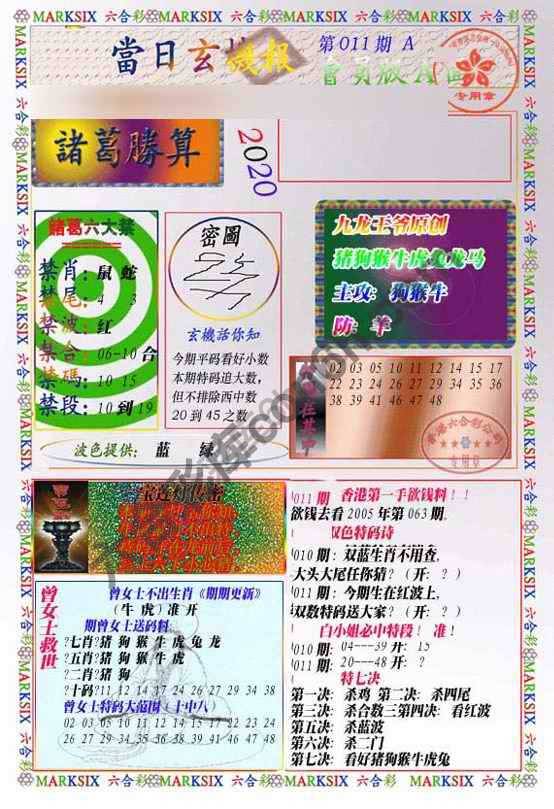 MARKSIX 六合彩 MARKSIX 六合彩 MARKSIX 六合彩 MARKSIX 六合彩 MARKSIX
當日玄機报
第011期 A
會員版A面
专用章
諸葛勝算
2020
諸葛六大禁
禁肖：鼠 蛇
禁尾：4 3
禁波：红
禁合：06-10合
禁碼：10 15
禁段：10到19
密圖
玄機話你知
今期平码看好小数
本期特码追大数，
但不排除西中数
20到45之数
波色提供： 蓝 绿
九龙王爷原创
猪狗猴牛虎兔龙马
主攻：狗猴牛
防：羊
02 03 05 10 11 12 14 15 17
22 23 24 26 27 29 33 35 36
38 39 41 46 47 48
香港六合彩公司
专用章
曾女士救世
曾女士不出生肖《期期更新》
（牛 虎）准 开
期曾女士送码料：
?七肖?猪 狗 猴 牛 虎 兔 龙
?五肖?猪 狗 猴 牛 虎
?二肖?猪 狗
?十码?11 12 14 17 24 26 27 29 34 38
曾女士特码大范围（十中八）
02 03 05 10 11 12 14 15 17 22 23 24
26 27 29 33 34 35 36 38 39 41 46 47 48
011期 香港第一手欲钱料！！
欲钱去看2005年第063期，
双色特码诗
010期：双蓝生肖不用查，
大头大尾任你猜？（开：？）
011期：今期生在红波上，
双数特码送大家？（开：？）
白小姐必中特段！ 准！
010期：04---39 开： 15
011期：20---48 开： ？
特七决
第一决：杀鸡 第二决：杀四尾
第三决：杀合数三第四决：看红波
第五决：杀蓝波
第六决：杀二门
第七决：看好猪狗猴牛虎兔
MARKSIX 六合彩 MARKSIX 六合彩 MARKSIX 六合彩 MARKSIX 六合彩 MARKSIX